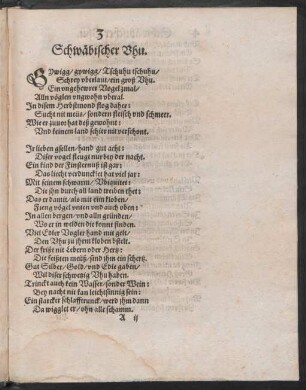 3
Schwäbischer Vhu.
GVwigg/ guwigg/ Tschuhu tschuhu/
Schrey vberlaut/ ein groß Vhu.
Ein vngehewrer Vogel zmal/
Alln vöglen vngwohn vberal.
In disem Herbstmond flog daher:
Sucht nit meüs/ sondern fleisch vnd schmeer.
Wie er zuuor hat des gewohnt:
Vnd keinem land schier nit verschont.
Ir lieben gsellen/ hand gut acht:
Diser vogel fleugt nur bey der nacht.
Ein kind der Finsternuß ist gar:
Das liecht verdunckt ist hat viel jar:
Mit seinem schwarm/ Vbiquitet:
Die ihn durch all land treiben thet:
Das er damit/ als mit eim kloben/
Fieng vögel vnten vnd auch oben:
In allen bergen/ vnd alln gründen/
Wo er in welden die konnt finden.
Viel Edler Vogler hand mit gelt/
Den Vhu zu ihrem kloben bstelt.
Der frißt nit Lebern oder Hertz:
Die feißten meüß/ sind ihm ein schertz.
Gut Silber/ Gold/ vnd Edle gaben/
Wil diser schwebig Vhu haben.
Trinckt auch kein Wasser/ sonder Wein:
Bey nacht nit kan leichtsinnig sein:
Ein starcker schlafftrunck/ werd ihm dann
Da wigglet er/ ohn alle schamm.
A ij